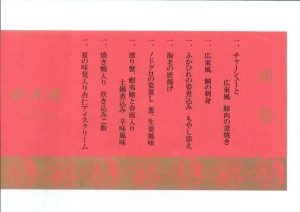 一、チャーシューと
広東風 豚肉の釜焼き
一、広東風 鯛の刺身
一、ふかひれの姿煮込み もやし添え
一、海老の唐揚げ
一、ノドグロの姿蒸し 葱、生姜風味
一、渡り蟹、蝦夷鮑と春雨入り
土鍋煮込み 辛味風味
一、焼き鴨入り 炊き込みご飯
一、夏の味覚入り杏仁アイスクリーム